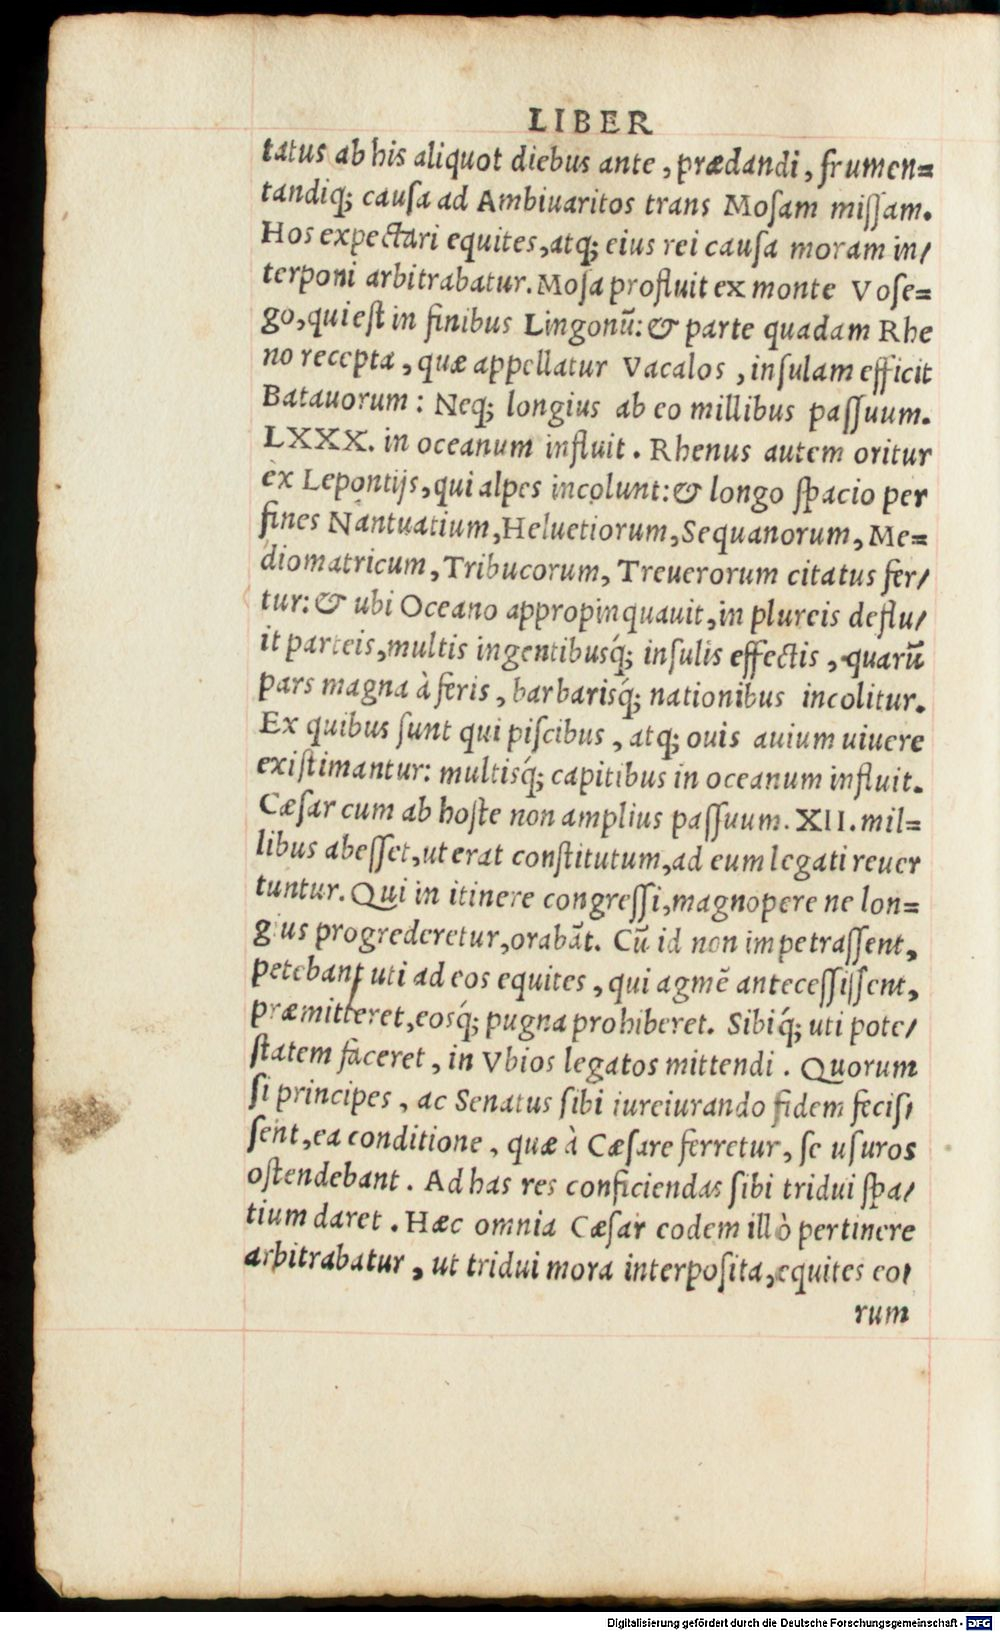 LIBER
tatus ab his aliquot diebus ante, prædandi, frumen=
tandiq; cauſa ad Ambiuaritos trans Moſam miſſam.
Hos expectari equites, atq; eius rei cauſa moram in/
terponi arbitrabatur. Moſa profluit ex monte Voſe=
go, qui eſt in finibus Lingonū: & parte quadam Rhe
no recepta, quæ appellatur Vacalos, inſulam efficit
Batauorum: Neq; longius ab eo millibus paſſuum.
LXXX. in oceanum influit. Rhenus autem oritur
ex Lepontijs, qui alpes incolunt: & longo ſpacio per
fines Nantuatium, Heluetiorum, Sequanorum, Me=
diomatricum, Tribucorum, Treuerorum citatus fer/
tur: & ubi Oceano appropinquauit, in plureis deflu/
it parteis, multis ingentibusq́; inſulis effectis, quarū
pars magna à feris, barbarisq́; nationibus incolitur.
Ex quibus ſunt qui piſcibus, atq; ouis auium uiuere
exiſtimantur: multisq́; capitibus in oceanum influit.
Cæſar cum ab hoſte non amplius paſſuum. XII. mil=
libus abeſſet, ut erat conſtitutum, ad eum legati reuer
tuntur. Qui in itinere congreſſi, magnopere ne lon=
gius progrederetur, orabāt. Cū id non impetraſſent,
petebant uti ad eos equites, qui agmē anteceſſiſſent,
præmitteret, eosq́; pugna prohiberet. Sibiq́; uti pote/
ſtatem faceret, in Vbios legatos mittendi. Quorum
ſi principes, ac Senatus ſibi iureiurando fidem feciſ/
ſent, ea conditione, quæ à Cæſare ferretur, ſe uſuros
oſtendebant. Ad has res conficiendas ſibi tridui ſpa/
tium daret. Hæc omnia Cæſar eodem illò pertinere
arbitrabatur, ut tridui mora interpoſita, equites eo/
rum
Digitalisierung gefördert durch die Deutsche Forschungsgemeinschaft - DFG